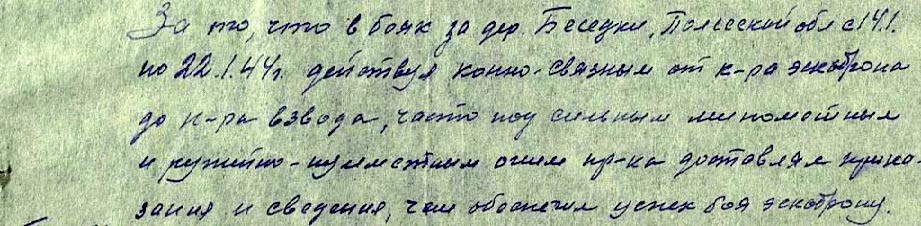 За то, что в боях за дер. Беседки, Полесской обл с 14.1.
по 22.1.44г. действуя конно-связным от к-ра эскадрона
до к-ра взвода, часто под сильным минометным
и ружейно-пулеметным огнем пр-ка доставлял прика-
зания и сведения, чем обеспечил успех боя эскадрону.